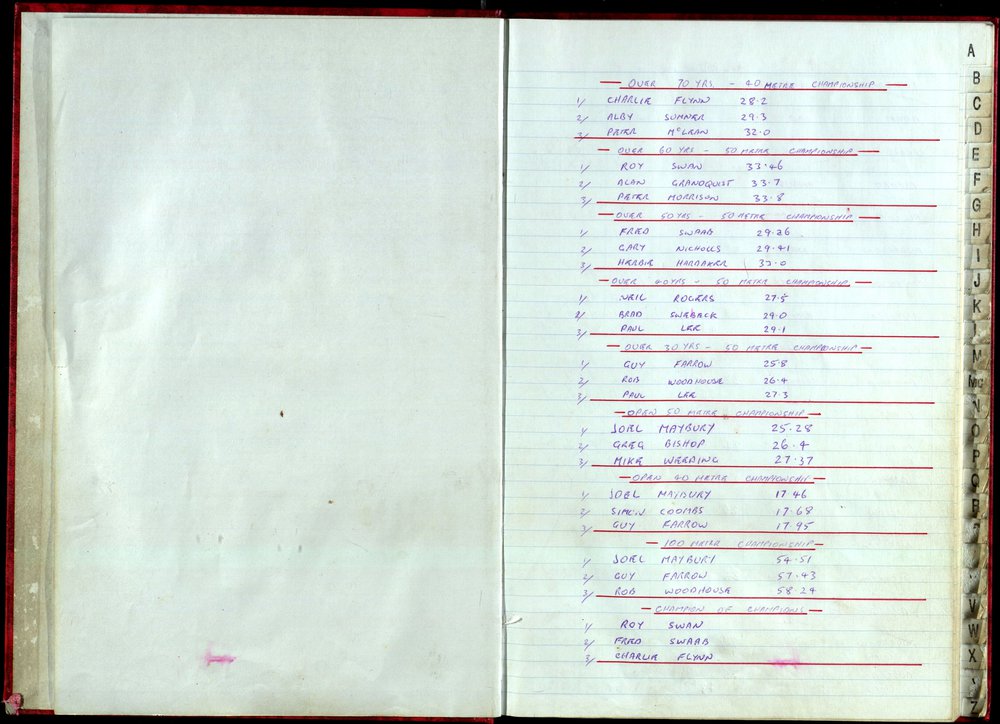 — OVER 70 YRS. — 40 METRE CHAMPIONSHIP —
1/ CHARLIE FLYNN 28.2
2/ ALBY SUMNER 29.3
3/ PETER McLEAN 32.0
— OVER 60 YRS - 50 METRE CHAMPIONSHIP —
1/ ROY SWAN 33.46
2/ ALAN GRANDQUIST 33.7
3/ PETER MORRISON 33.8
— OVER 50 YRS - 50 METRE CHAMPIONSHIP —
1/ FRED SWAAB 29.26
2/ GARY NICHOLLS 29.41
3/ HERBIE HARDAKER 33.0
— OVER 40 YRS - 50 METRE CHAMPIONSHIP —
1/ NEIL ROGERS 27.5
2/ BRAD SWEBACK 29.0
3/ PAUL LEE 29.1
— OVER 30 YRS - 50 METRE CHAMPIONSHIP —
1/ GUY FARROW 25.8
2/ ROB WOODHOUSE 26.4
3/ PAUL LEE 27.3
— OPEN 50 METRE CHAMPIONSHIP —
1/ JOEL MAYBURY 25.28
2/ GREG BISHOP 26.4
3/ MIKE 27.37
— OPEN 40 METRE CHAMPIONSHIP —
1/ JOEL MAYBURY 17 46
2/ SIMON COOMBS 17.68
3/ GUY FARROW 17.95
— 100 METRE CHAMPIONSHIP —
1/ JOEL MAYBURY 54.51
2/ GUY FARROW 57.43
3/ ROB WOODHOUSE 58.24
— CHAMPION OF CHAMPIONS —
1/ ROY SWAN
2/ FRED SWAAB
3/ CHARLIE FLYNN
A
B
C
D
E
F
G
H
I
J
K
L
M
Mc
N
O
P
Q
R
V
W
X
Z